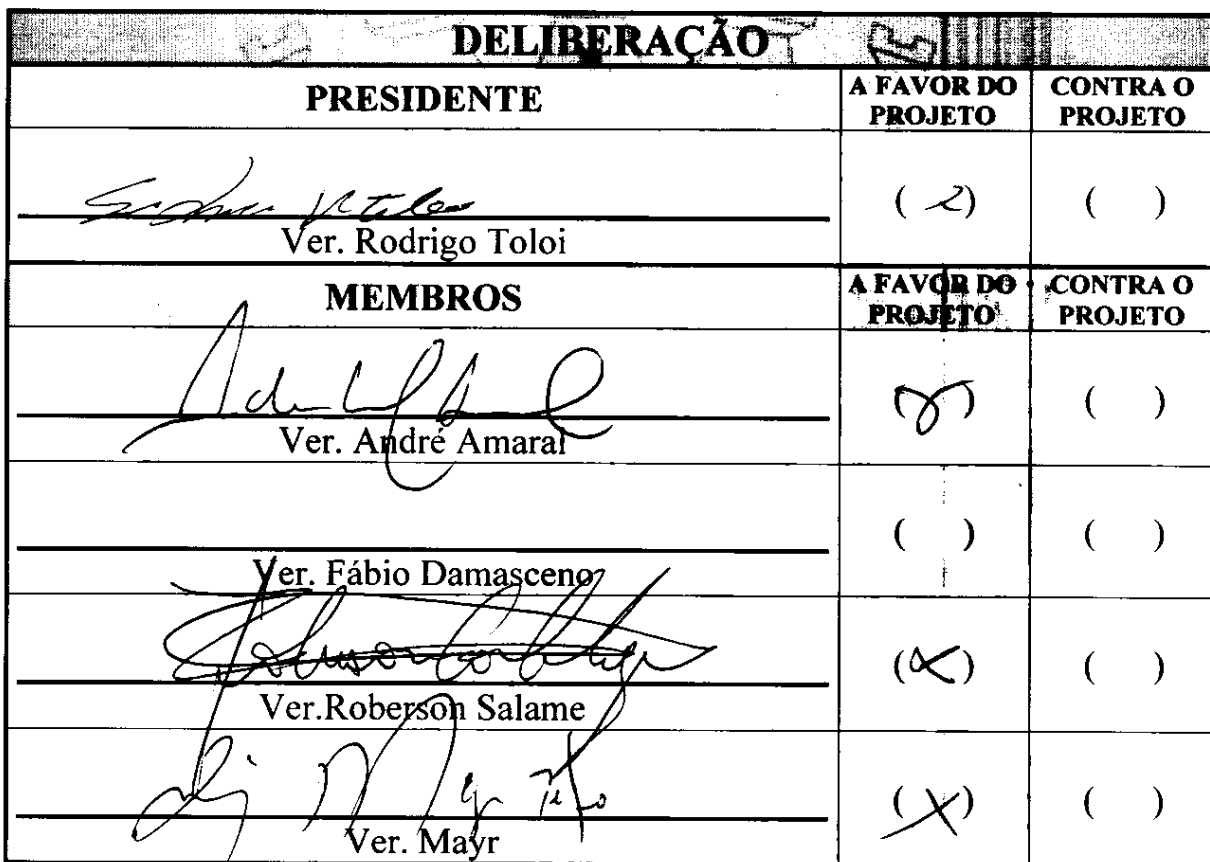 DELIBERAÇÃO
PRESIDENTE
A FAVOR DO PROJETO
CONTRA O PROJETO
( )
Ver. Rodrigo Toloi
MEMBROS
A FAVOR DO PROJETO
CONTRA O PROJETO
( )
Ver. André Amaral
( ) ( )
Ver. Fábio Damasceno
( )
Ver.Roberson Salame
(X) ( )
Ver. Mayr